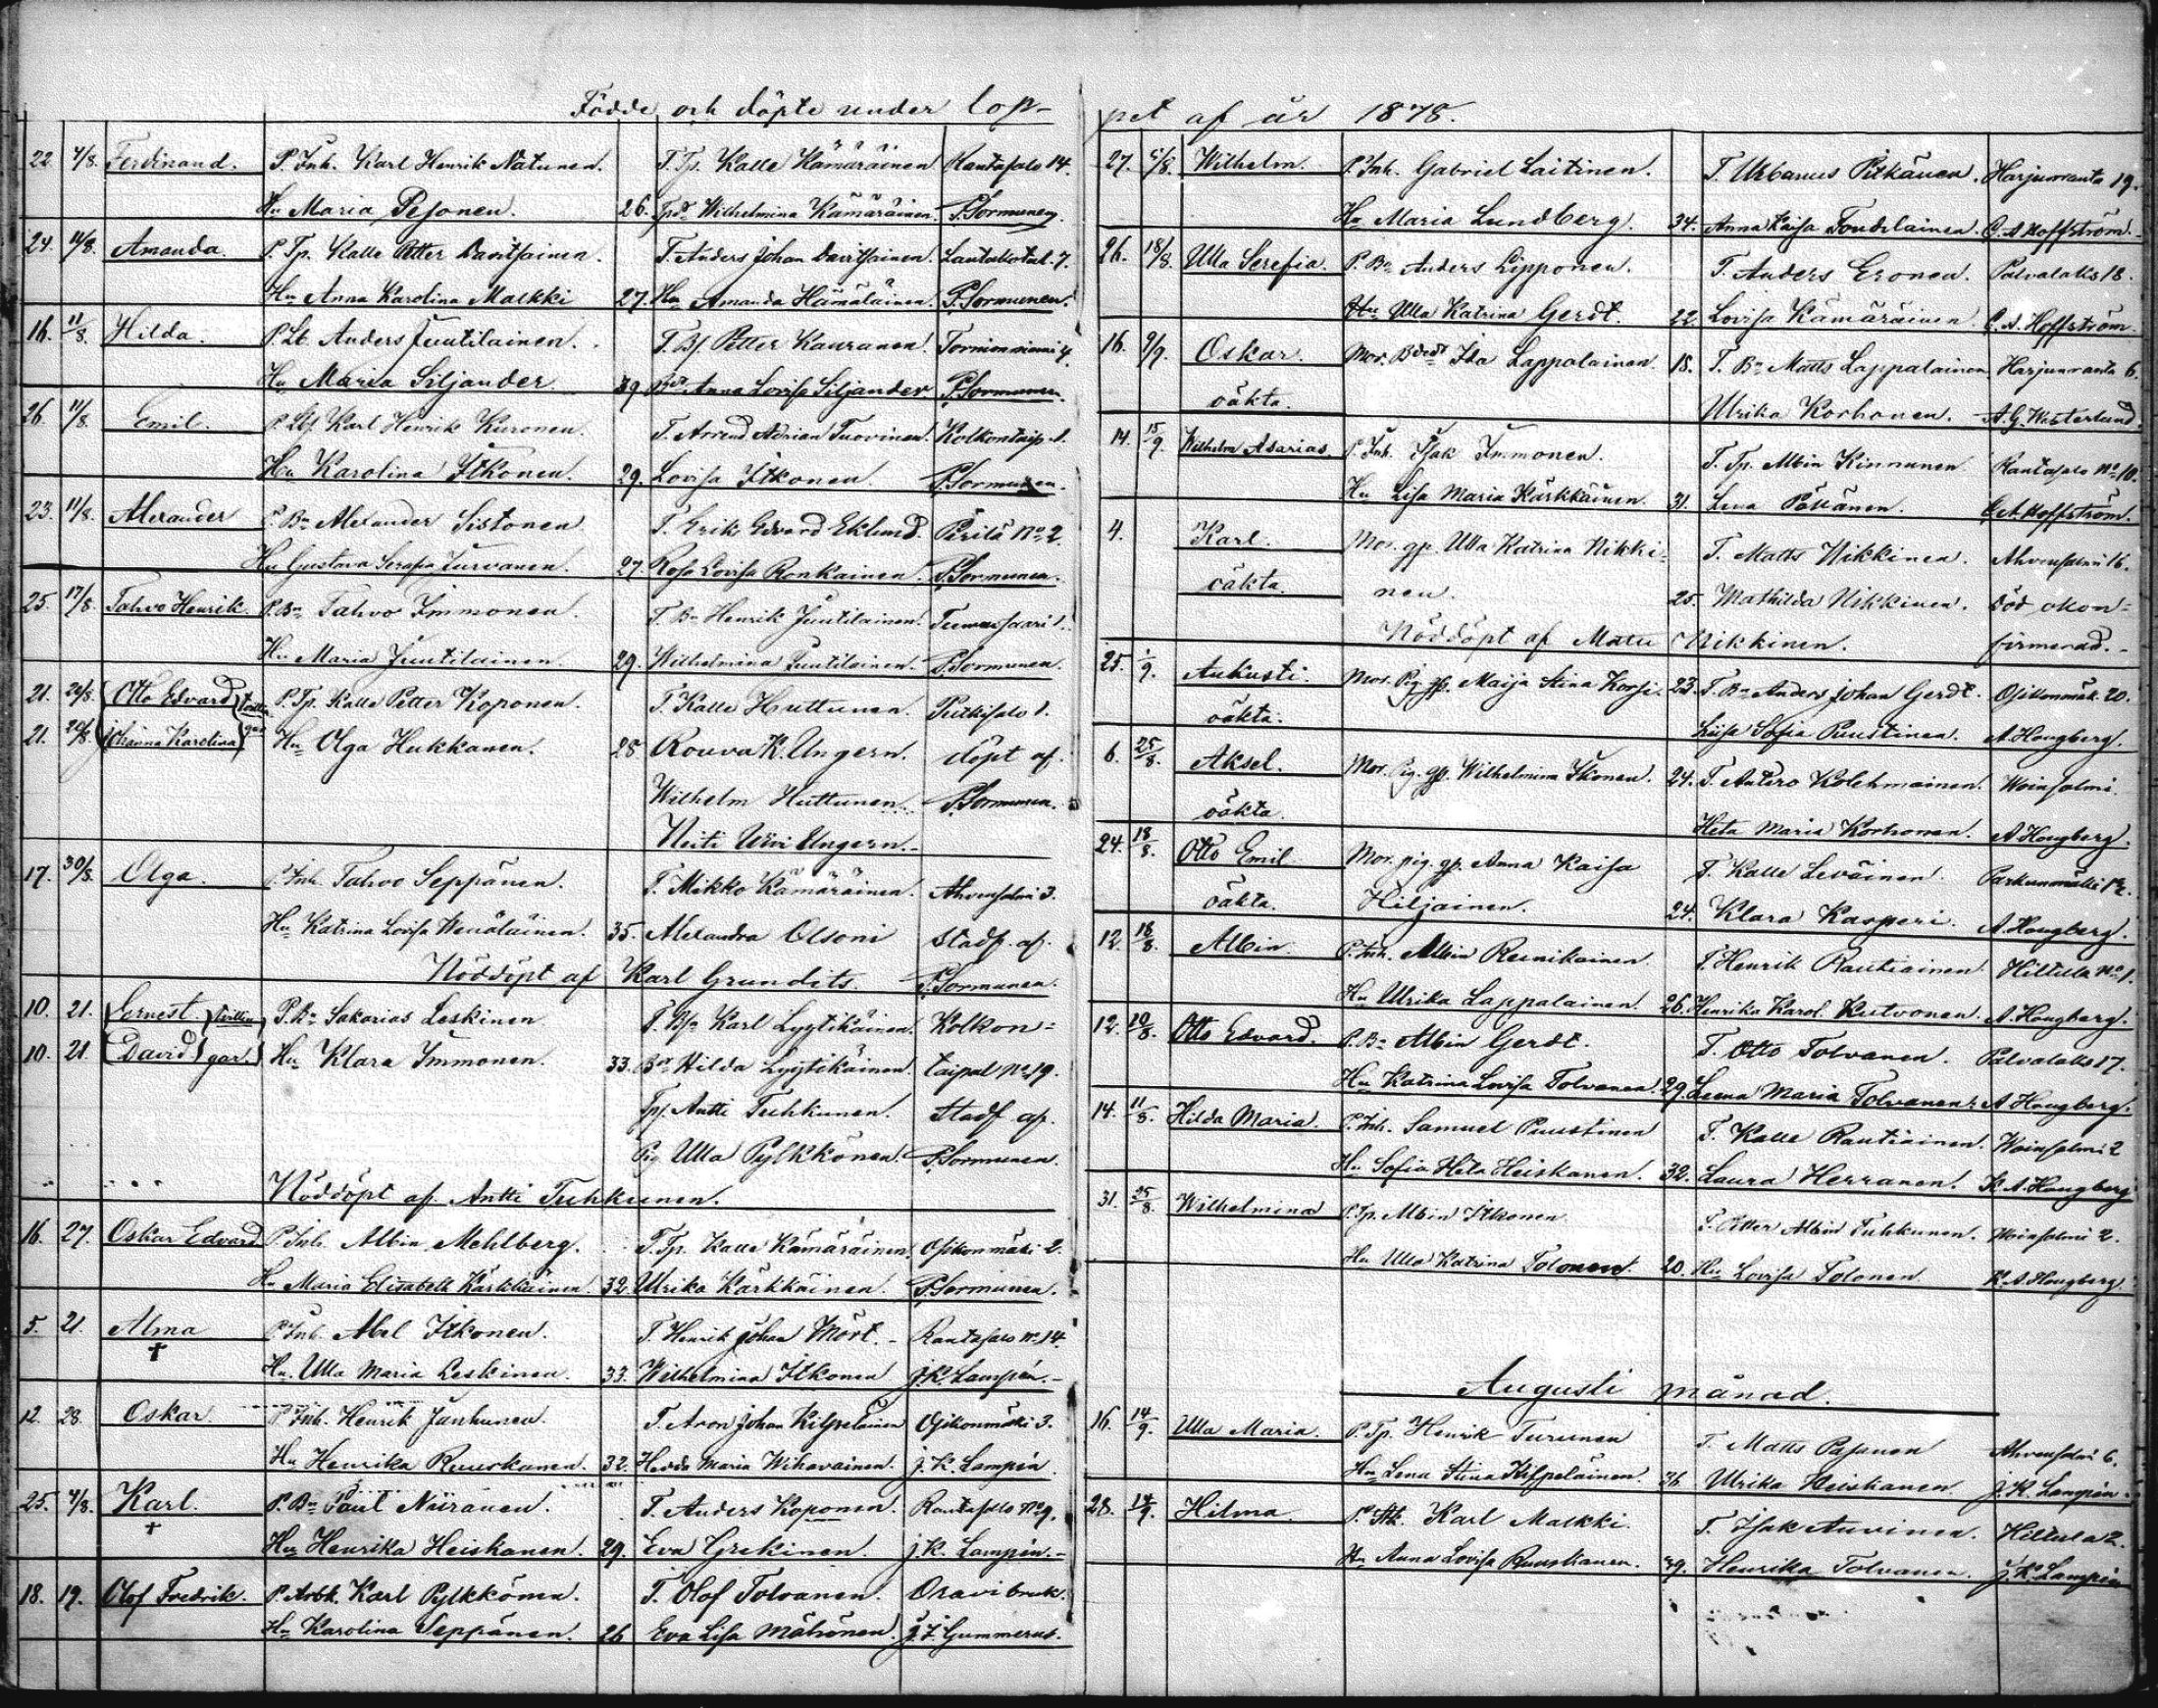 Födde och döpte under lop-
22. 4/8. Ferdinand. P. Inh. Karl Henrik Nätunen. T. Tp. Kalle Kämäräinen Rantasalo 14.
Hu Maria Pesonen. 26. Wilhelmina Kämäräinen. P. Sormunen.
24. 11/8. Amanda. P. Tp. Kalle Petter Davitsainen. T. Anders Johan Davitsainen. 7.
Hu Anna Karolina Malkki 27. Hu Amanda Hämäläinen. P. Sormunen.
16. 11/8. Hilda. P. Lb. Anders Juutilainen. T. Bs. Petter Kauranen. Tornionniemi 4.
Hu Maria Siljander 39 Anna Lovisa Siljander P. Sormunen.
26. 11/8. Emil. P. Karl Henrik Kuronen. T. Arvid Adrian Tuovinen. Kolkontaip. 1.
Hu Karolina Itkonen. 29. Lovisa Itkonen. P. Sormunen.
23. 11/8. Alexander P. Bn Alexander Sistonen T. Erik Edvard Eklund. Pirilä No 2.
Hu Gustava Serafia Turvanen. 27. Rosa Lovisa Ronkainen. P. Sormunen.
25. 17/8. Tahvo Henrik. P. Bn Tahvo Immonen. T. Bn Henrik Juutilainen. 1.
Hu Maria Juutilainen. 29. Wilhelmina Juutilainen. P. Sormunen.
21. 20/8. Otto Edvard P. Tp. Kalle Petter Koponen. T. Kalle Huttunen. Putkisalo 1.
21. 20/8. Johanna Karolina Hu Olga Hukkanen. 28 Rouva K. Ungern. döpt af
Wilhelm Huttunen. P. Sormunen.
Neiti Ungern.
17. 30/8. Olga. P. Inh. Tahvo Seppänen. T. Mikko Kämäräinen. Ahvensalmi 3.
Hu Katrina Lovisa Wenäläinen. 35. Alexandra Olsoni stadf. af.
Nöddöpt af Karl Grundits. P. Sormunen.
10. 21. Ernest. tvillin P. Bn Sakarias Leskinen T. Karl Lyytikäinen. Kolkon=
10. 21. David gar. Hu Klara Immonen. 33. Hilda Lyytikäinen. taipal No 19.
Tp. Antti Tuhkunen. stadf af.
Pig Ulla Pylkkönen. P. Sormunen.
Nöddöpt af Antti Tuhkunen.
16. 27. Oskar Edvard P. Inh. Albin Mehlberg. T. Tp. Kalle Kämäräinen. Osikonmäki 2.
Hu Maria Elisabeth Karkkäinen. 32. Ulrika Karkkäinen. P. Sormunen.
5. 21. Alma P. Inh. Abel Itkonen. T. Henrik Johan Mört. Rantasalo No 14.
†
Hu. Ulla Maria Leskinen. 33. Wilhelmina Itkonen J. K. Lampén.
12. 28. Oskar P. Inh. Henrik Janhunen. T. Aron Johan Kilpeläinen Osikonmäki 3.
Hu Henrika Ruuskanen. 32. Hedda Maria Wihavainen. J. K. Lampén.
25. 4/8. Karl. P. Bn Paul Niiranen. T. Anders Koponen. Rantasalo No 9.
†
Hu Henrika Heiskanen. 29. Eva Grekinen. J. K. Lampén.
18. 19. Olof Fredrik. P. Arbk. Karl Pylkkönen. T. Olof Tolvanen. Oravi bruk.
Hu Karolina Seppänen. 26 Eva Lisa Mähönen. J. F. Gummerus.
pet af år 1878.
27. Wilhelm. P. Inh. Gabriel Laitinen. T. Urbanus Pitkänen. Harjunranta 19.
Hu Maria Lundberg. 34. Anna Kaisa Toudelainen. C. A. Hoffström.
26. 18/8. Ulla Serefia. P. Bn Anders Lipponen. T. Anders Eronen. Palvalaks 18.
Hu Ulla Katrina Gerdt. 22. Lovisa Kämäräinen. C. A. Hoffström.
16. 9/9. Oskar. Mor. Ida Lappalainen. 18. T. Bn Matts Lappalainen. Harjunranta 6.
oäkta. Ulrika Korhonen. A. G. Westerlund.
14. 15/9. Wilhelm Asarias P. Inh. Isak Immonen. T. Tp. Albin Kinnunen. Rantasalo No 10.
Hu Lisa Maria Karkkäinen. 31. Lena Pöllänen. C. A. Hoffström.
4. Karl. Mor. gp. Ulla Katrina Nikki- T. Matts Nikkinen. Ahvensalmi 16.
oäkta. nen. 25. Mathilda Nikkinen. död okon=
Nöddöpt af Matts Nikkinen. firmerad.
25. 1/9. Aukusti. Mor. Pig. gp. Maija Stina Korsi. 23. T. Bn Anders Johan Gerdt. Osikonmäk. 20.
oäkta. Liisa Sofia Puustinen. A. Hougberg.
6. 25/8. Aksel. Mor. Pig. gp. Wilhelmina Itkonen. 24. T. Antero Kolehmainen. Woinsalmi.
oäkta. Heta Maria Korhonen. A. Hougberg.
24. 18/8. Otto Emil Mor. pig. gp. Anna Kaisa T. Kalle Leväinen. Parkunmäki 12.
oäkta. Hiljainen. 24. Klara Kasperi. A. Hougberg.
12. 18/8. Albin. P. Inh. Albin Reinikainen. T. Henrik Rautiainen. Hiltula No 1.
Hu Ulrika Lappalainen 26. Henrika Karol. Kutvonen. A. Hougberg.
12. 10/8. Otto Edvard. P. Bn Albin Gerdt. T. Otto Tolvanen. Palvalaks 17.
Hu Katrina Lovisa Tolvanen. 29. Leena Maria Tolvanen. A. Hougberg.
14. 11/8. Hilda Maria. P. Inh. Samuel Puustinen T. Kalle Rautiainen. Woinsalmi 2
Hu Sofia Heta Heiskanen. 32. Laura Herranen. K. A. Hougberg
31. 25/8. Wilhelmina P. Tp. Albin Itkonen T. Petter Albin Tuhkunen. Woinsalmi 2.
Hu Ulla Katrina Tolonen. 20. Hu Lovisa Tolonen K. A. Hougberg.
Augusti månad.
16. 14/9. Ulla Maria. P. Tp. Henrik Turunen T. Matts Pasanen Ahvensalmi 6.
Hu Lena Stina Kilpeläinen. 36. Ulrika Heiskanen J. K. Lampén.
28. 14/9. Hilma. P. Karl Malkki. T. Isak Auvinen. Hiltula 2.
Hu Anna Lovisa Ruuskanen. 39. Henrika Tolvanen. J. K. Lampén